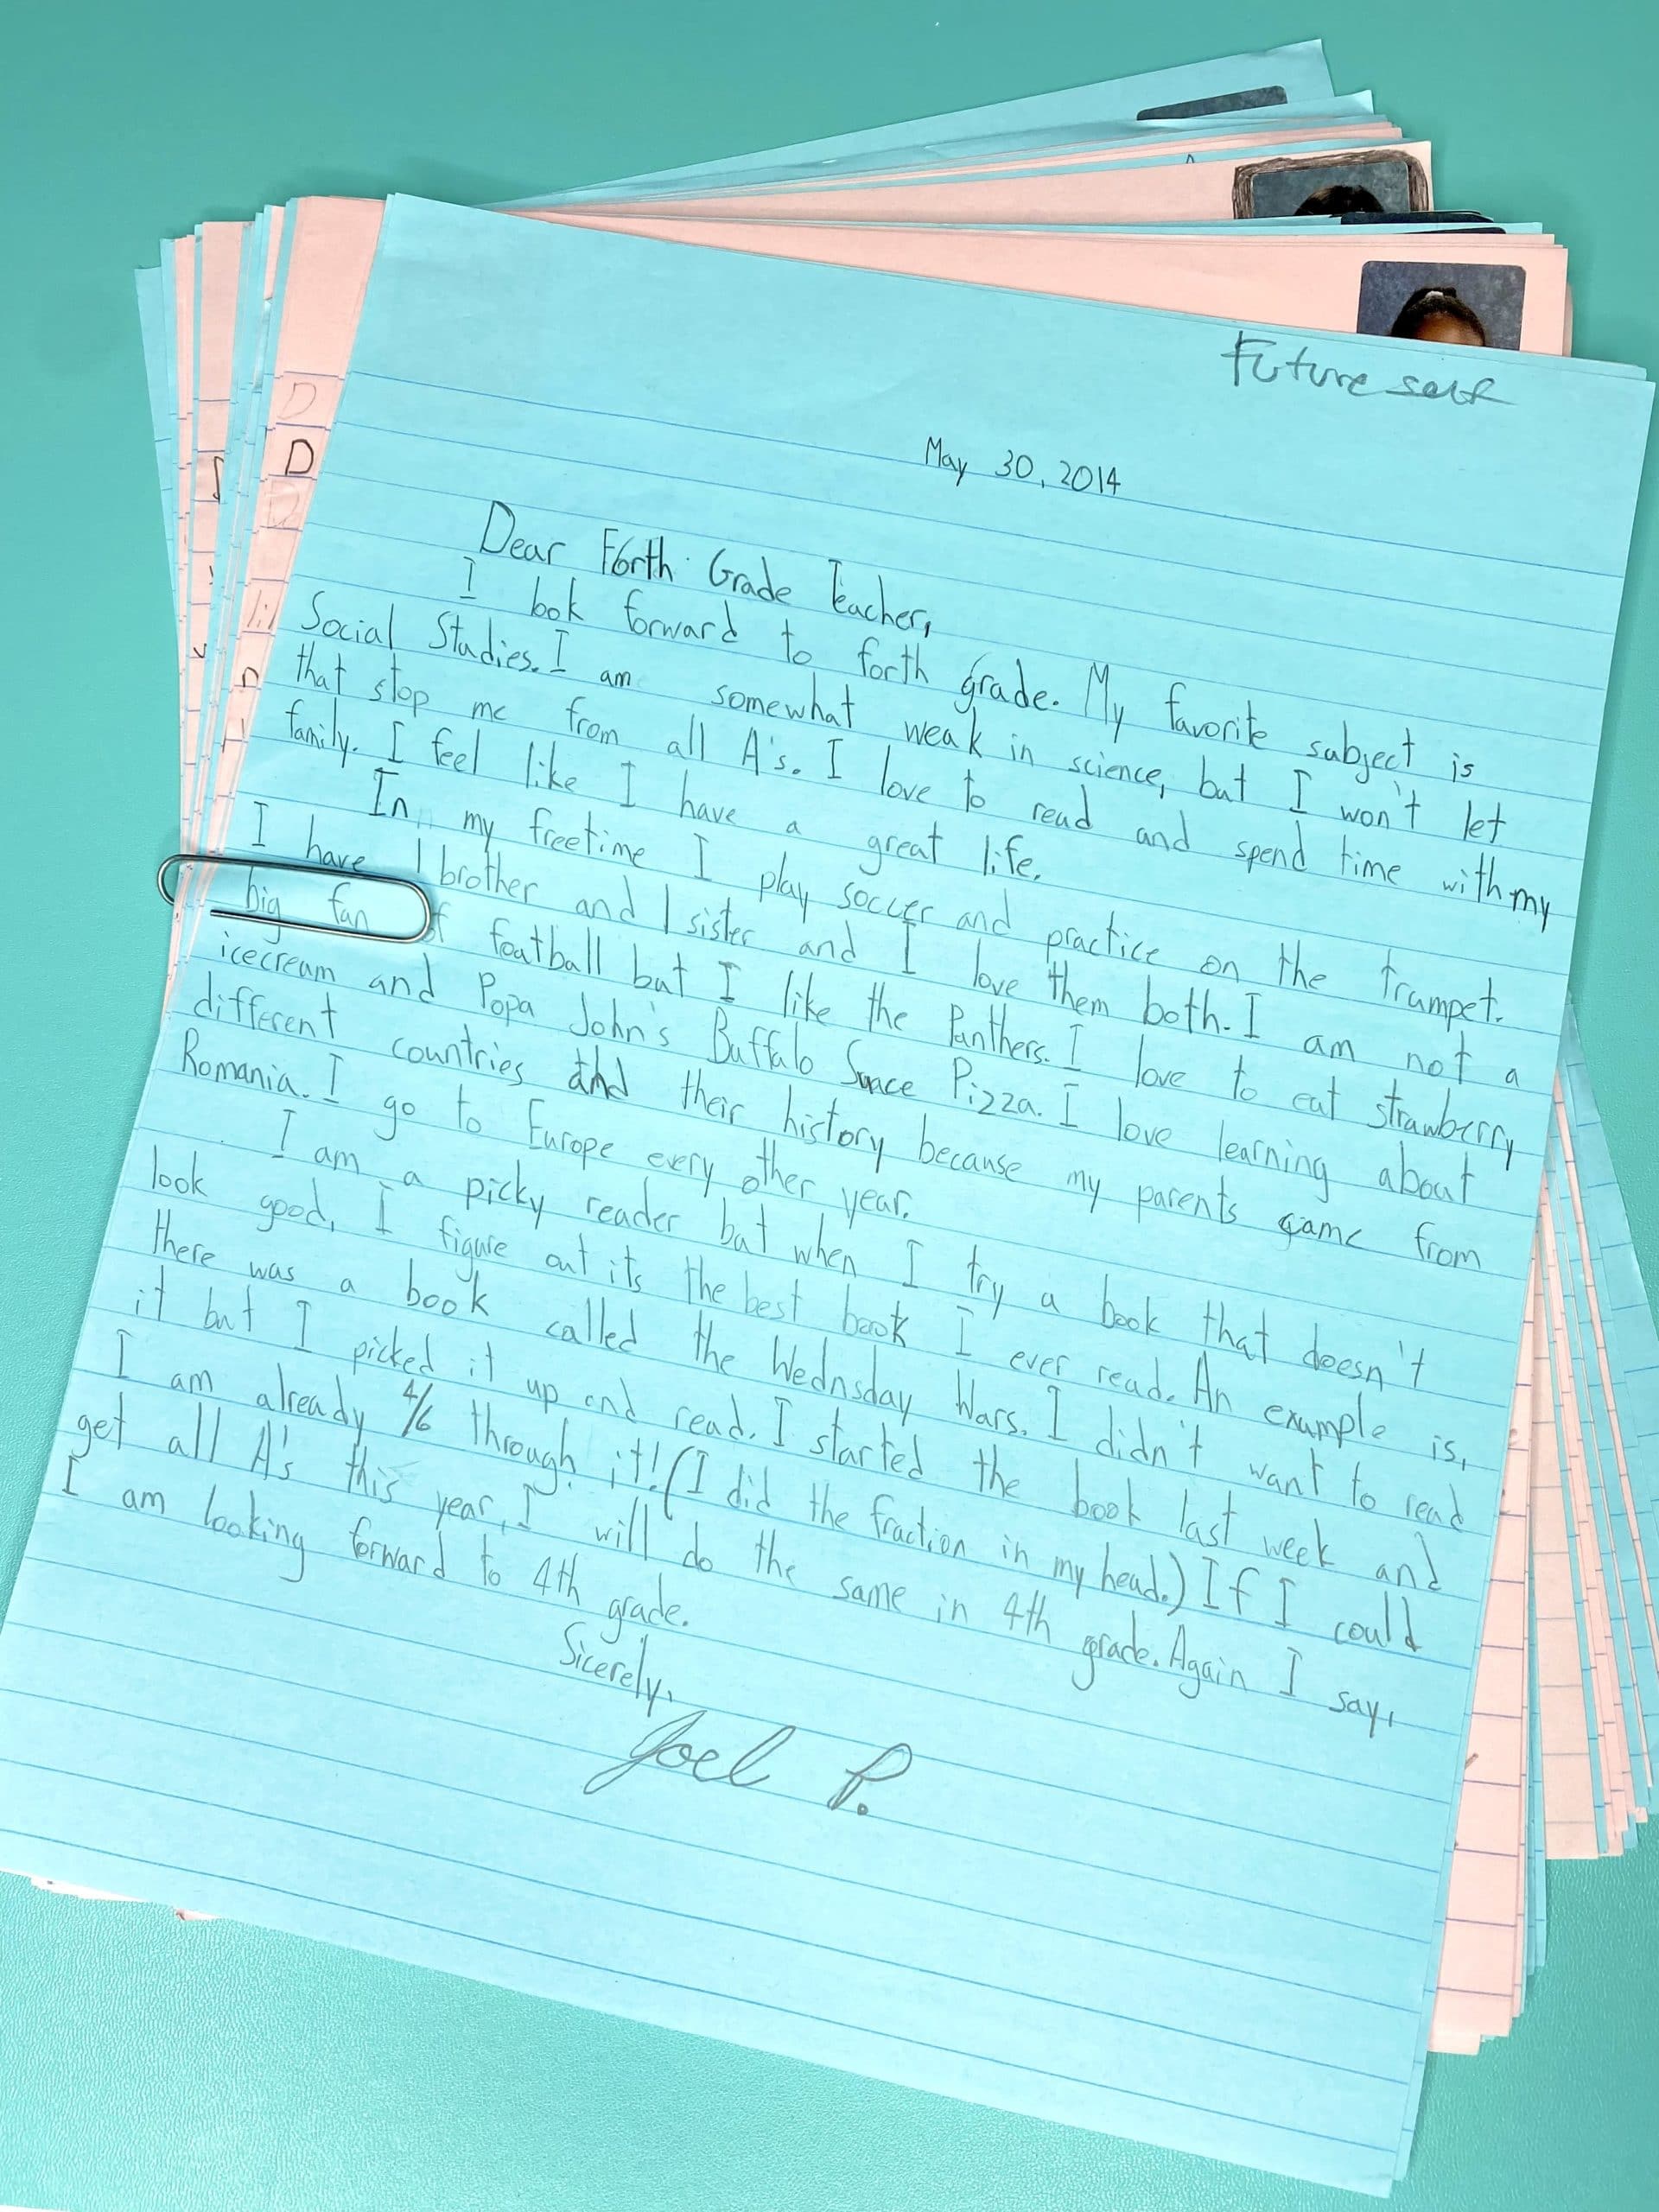 Future self
May 30, 2014
Dear Forth Grade Teacher,
I look forward to forth grade. My favorite subject is
Social Studies. I am somewhat weak in science, but I won't let
that stop me from all A's. I love to read and spend time with my
family. I feel like I have a great life.
In my freetime I play soccer and practice on the trumpet.
I have 1 brother and 1 sister and I love them both. I am not a
big fan of football but I like the Panthers. I love to eat strawberry
icecream and Popa John's Buffalo Suace Pizza. I love learning about
different countries and their history because my parents came from
Romania. I go to Europe every other year.
I am a picky reader but when I try a book that doesn't
look good, I figure out its the best book I ever read. An example is,
there was a book called the Wednsday Wars. I didn't want to read
it but I picked it up and read. I started the book last week and
I am already 4/6 through it! (I did the fraction in my head.) If I could
get all A's this year, I will do the same in 4th grade. Again I say,
I am looking forward to 4th grade.
Sicerely,
Joel P.